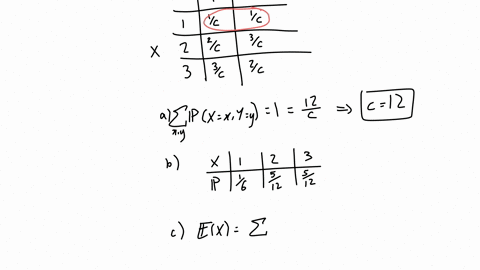 1 1/c 1/c
X 2 2/c 3/c
3 3/c 2/c
a) ∑ x,y ℙ(X=x, Y=y) = 1 = 12/c ⟹ c=12
b) X 1 2 3
ℙ 1/6 5/12 5/12
c) 𝔼(X) = ∑